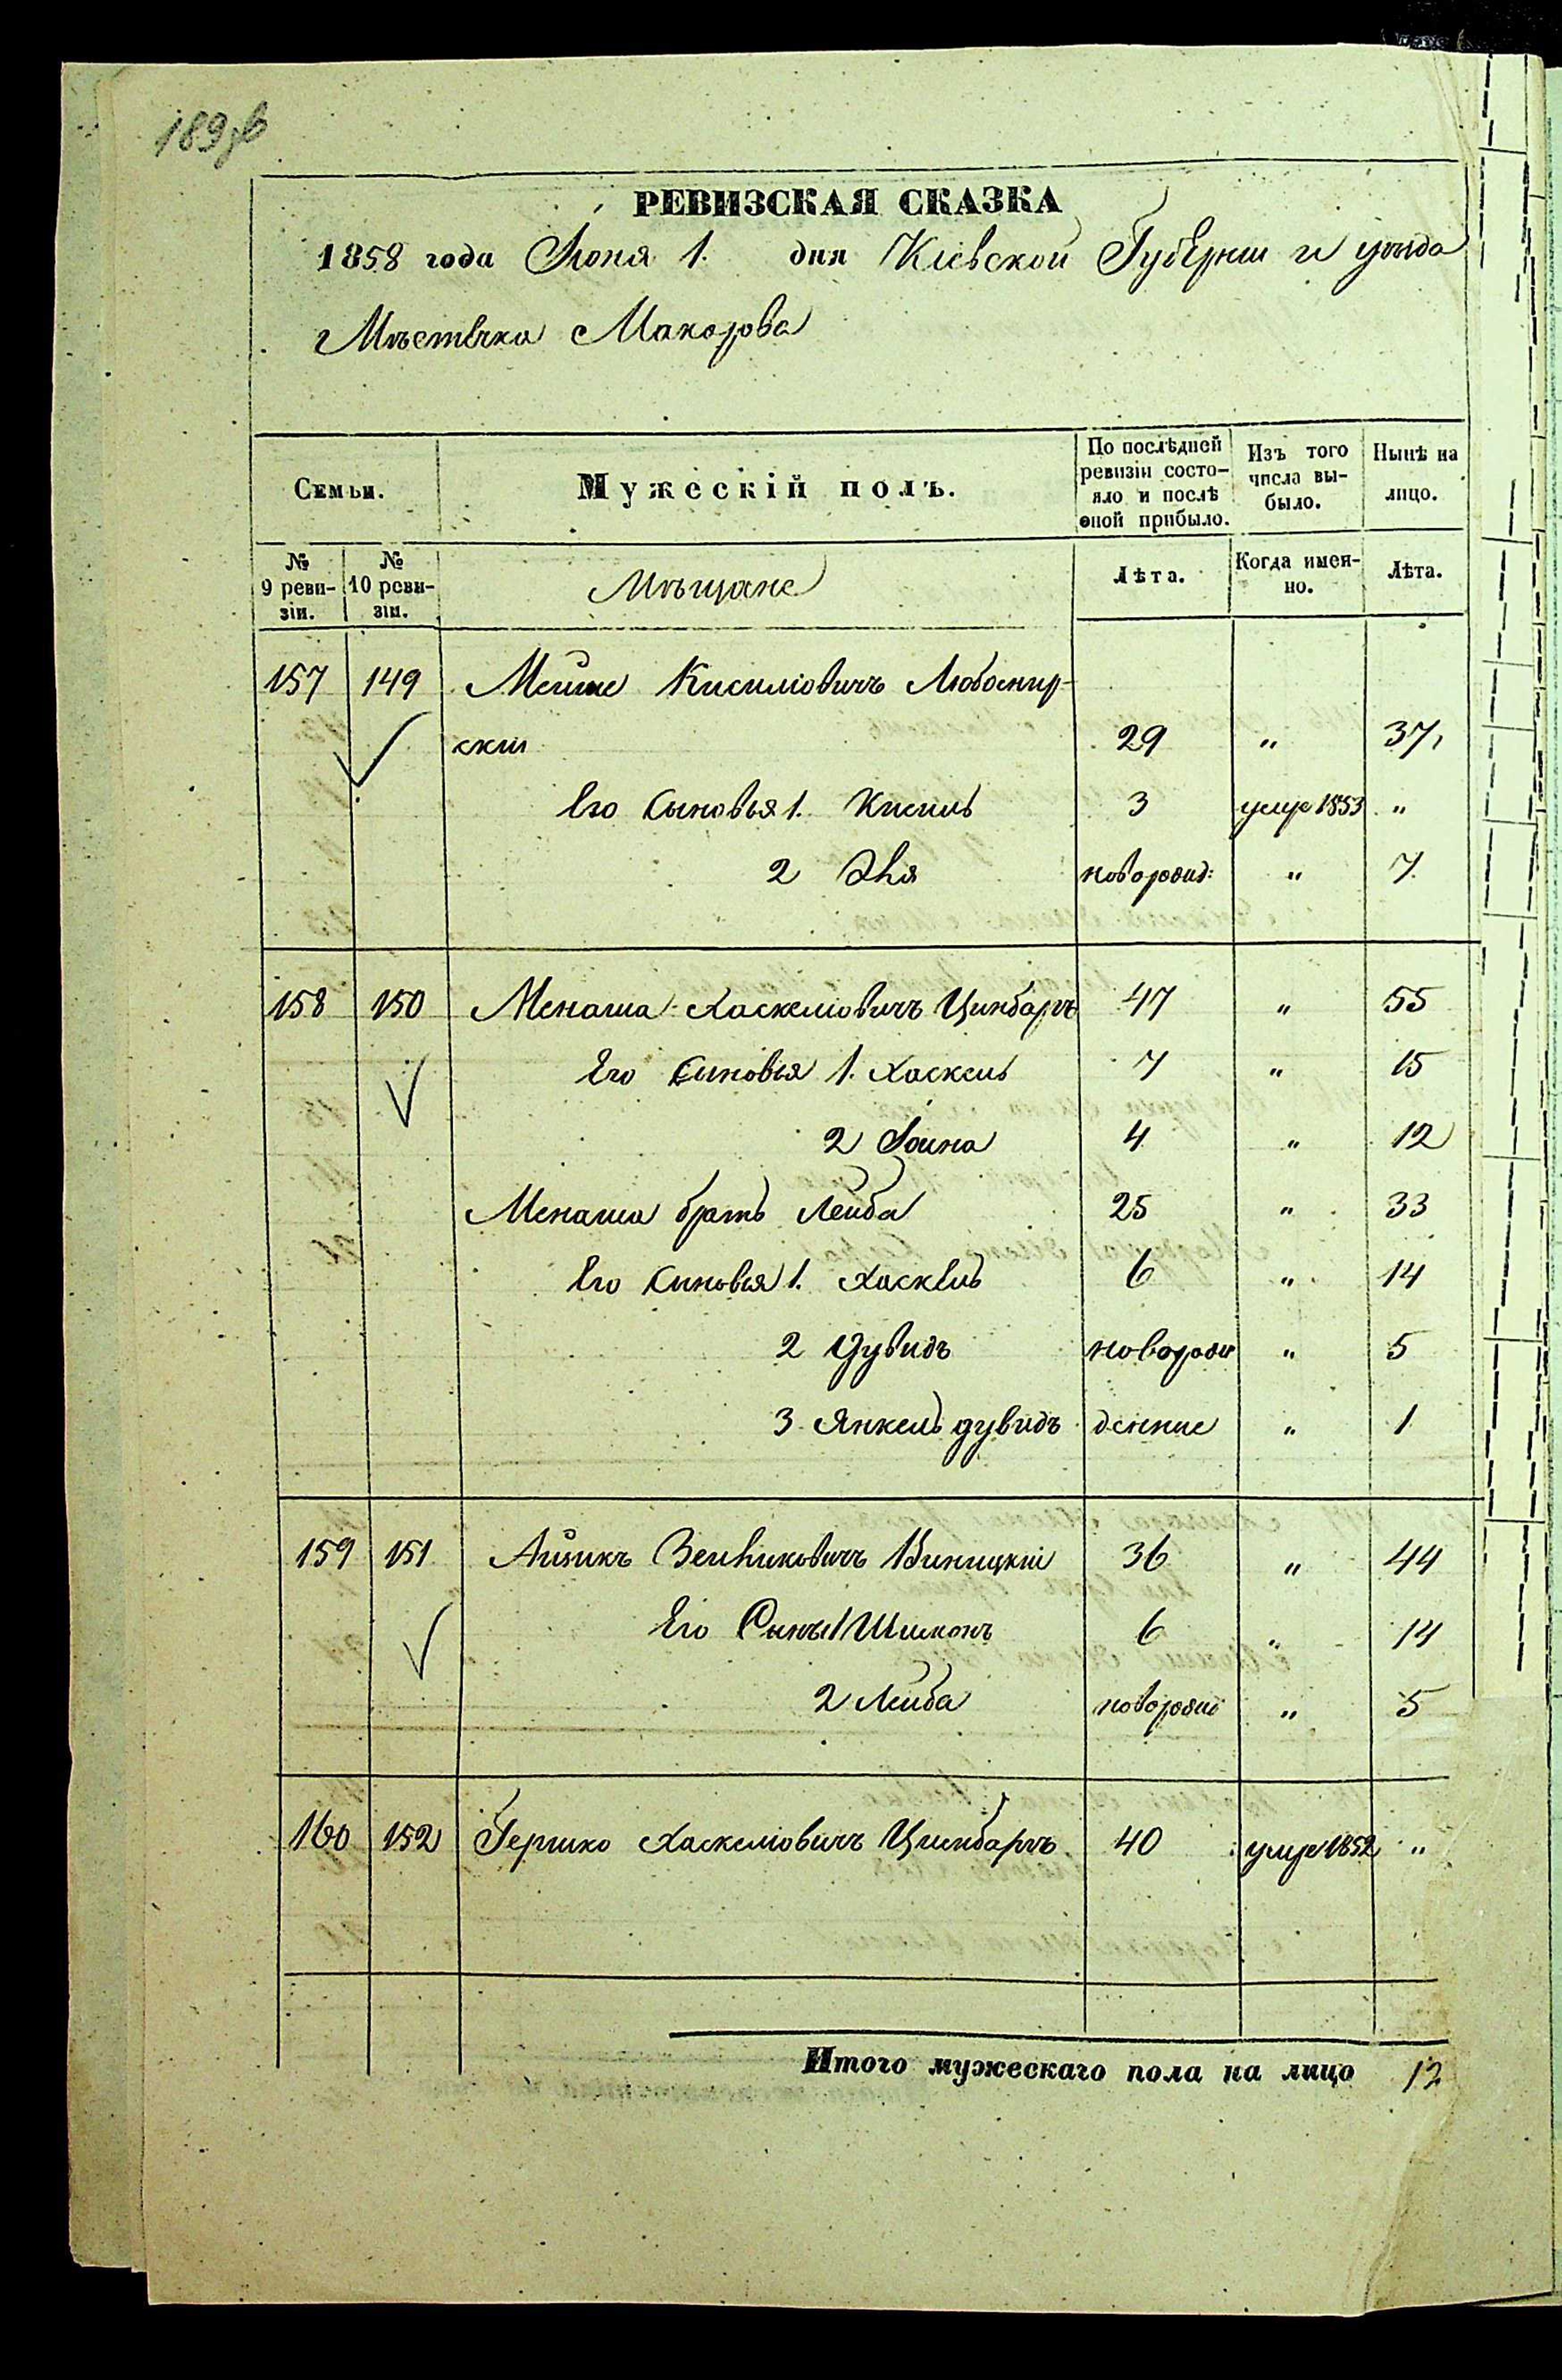 189об
РЕВИЗСКАЯ СКАЗКА
1858 года Июня 1. дня Кіевской Губерніи и уѣзда
Мѣстечка Макарова
Семьи.
Мужескій полъ.
По послѣдней ревизіи состо-
яло и послѣ оной прибыло.
Изъ того числа вы-
было.
Нынѣ на лицо.
№ 9 реви-
зіи.
№ 10 реви-
зіи.
Мѣщане
Лѣта.
Когда имен-
но.
Лѣта.
157 149 Мошко Кисилювичъ Любомир-
скій 29 " 37
Его Сыновья 1. Кисиль 3 умре 1853 "
2 новорожд: " 7
158 150 Менаша Хаскелювичъ Цинбаръ 47 " 55
Его Сыновья 1. Хаскель 7 " 15
2 Іоина 4 " 12
Менаша братъ Лейба 25 " 33
Его Сыновья 1. Хаскель 6 " 14
2 Дувидъ новорож " 5
3 Янкель дувидъ денные " 1
159 151 Айзикъ 36 " 44
Его Сыны 1 Шимонъ 6 " 14
2 Лейба новорожд " 5
160 152 Гершко Хаскелювичъ Цимбаръ 40 умре 1852 "
Итого мужескаго пола на лицо 12